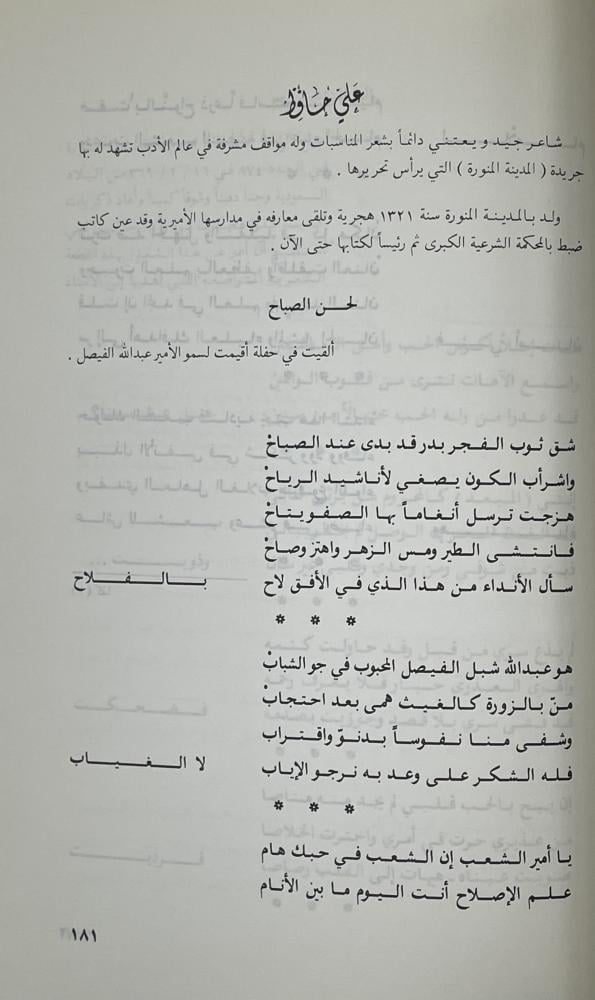 علي حافظ
شاعر جيد ويعتني دائماً بشعر المناسبات وله مواقف مشرفة في عالم الأدب تشهد له بها
جريدة ( المدينة المنورة ) التي يرأس تحريرها .
ولد بالمدينة المنورة سنة ١٣٢١ هجرية وتلقى معارفه في مدارسها الأميرية وقد عين كاتب
ضبط بالمحكمة الشرعية الكبرى ثم رئيساً لكتابها حتى الآن .
لحن الصباح
ألقيت في حفلة أقيمت لسمو الأمير عبدالله الفيصل .
شق ثوب الفجر بدر قد بدى عند الصباحْ
واشرأب الكون يصغي لأناشيد الرياحْ
هزجت ترسل أنغاماً بها الصفو يتاحْ
فانتشى الطير ومس الزهر واهتز وصاحْ
سأل الأنداء من هذا الذي في الأفق لاح بالفلاح
* * *
هو عبدالله شبل الفيصل المحبوب في جو الشبابْ
منّ بالزورة كالغيث همى بعد احتجابْ
وشفى منا نفوساً بدنوّ واقتراب
فله الشكر على وعد به نرجو الإياب لا الغياب
* * *
يا أمير الشعب إن الشعب في حبك هام
علم الإصلاح أنت اليوم ما بين الأنام
١٨١